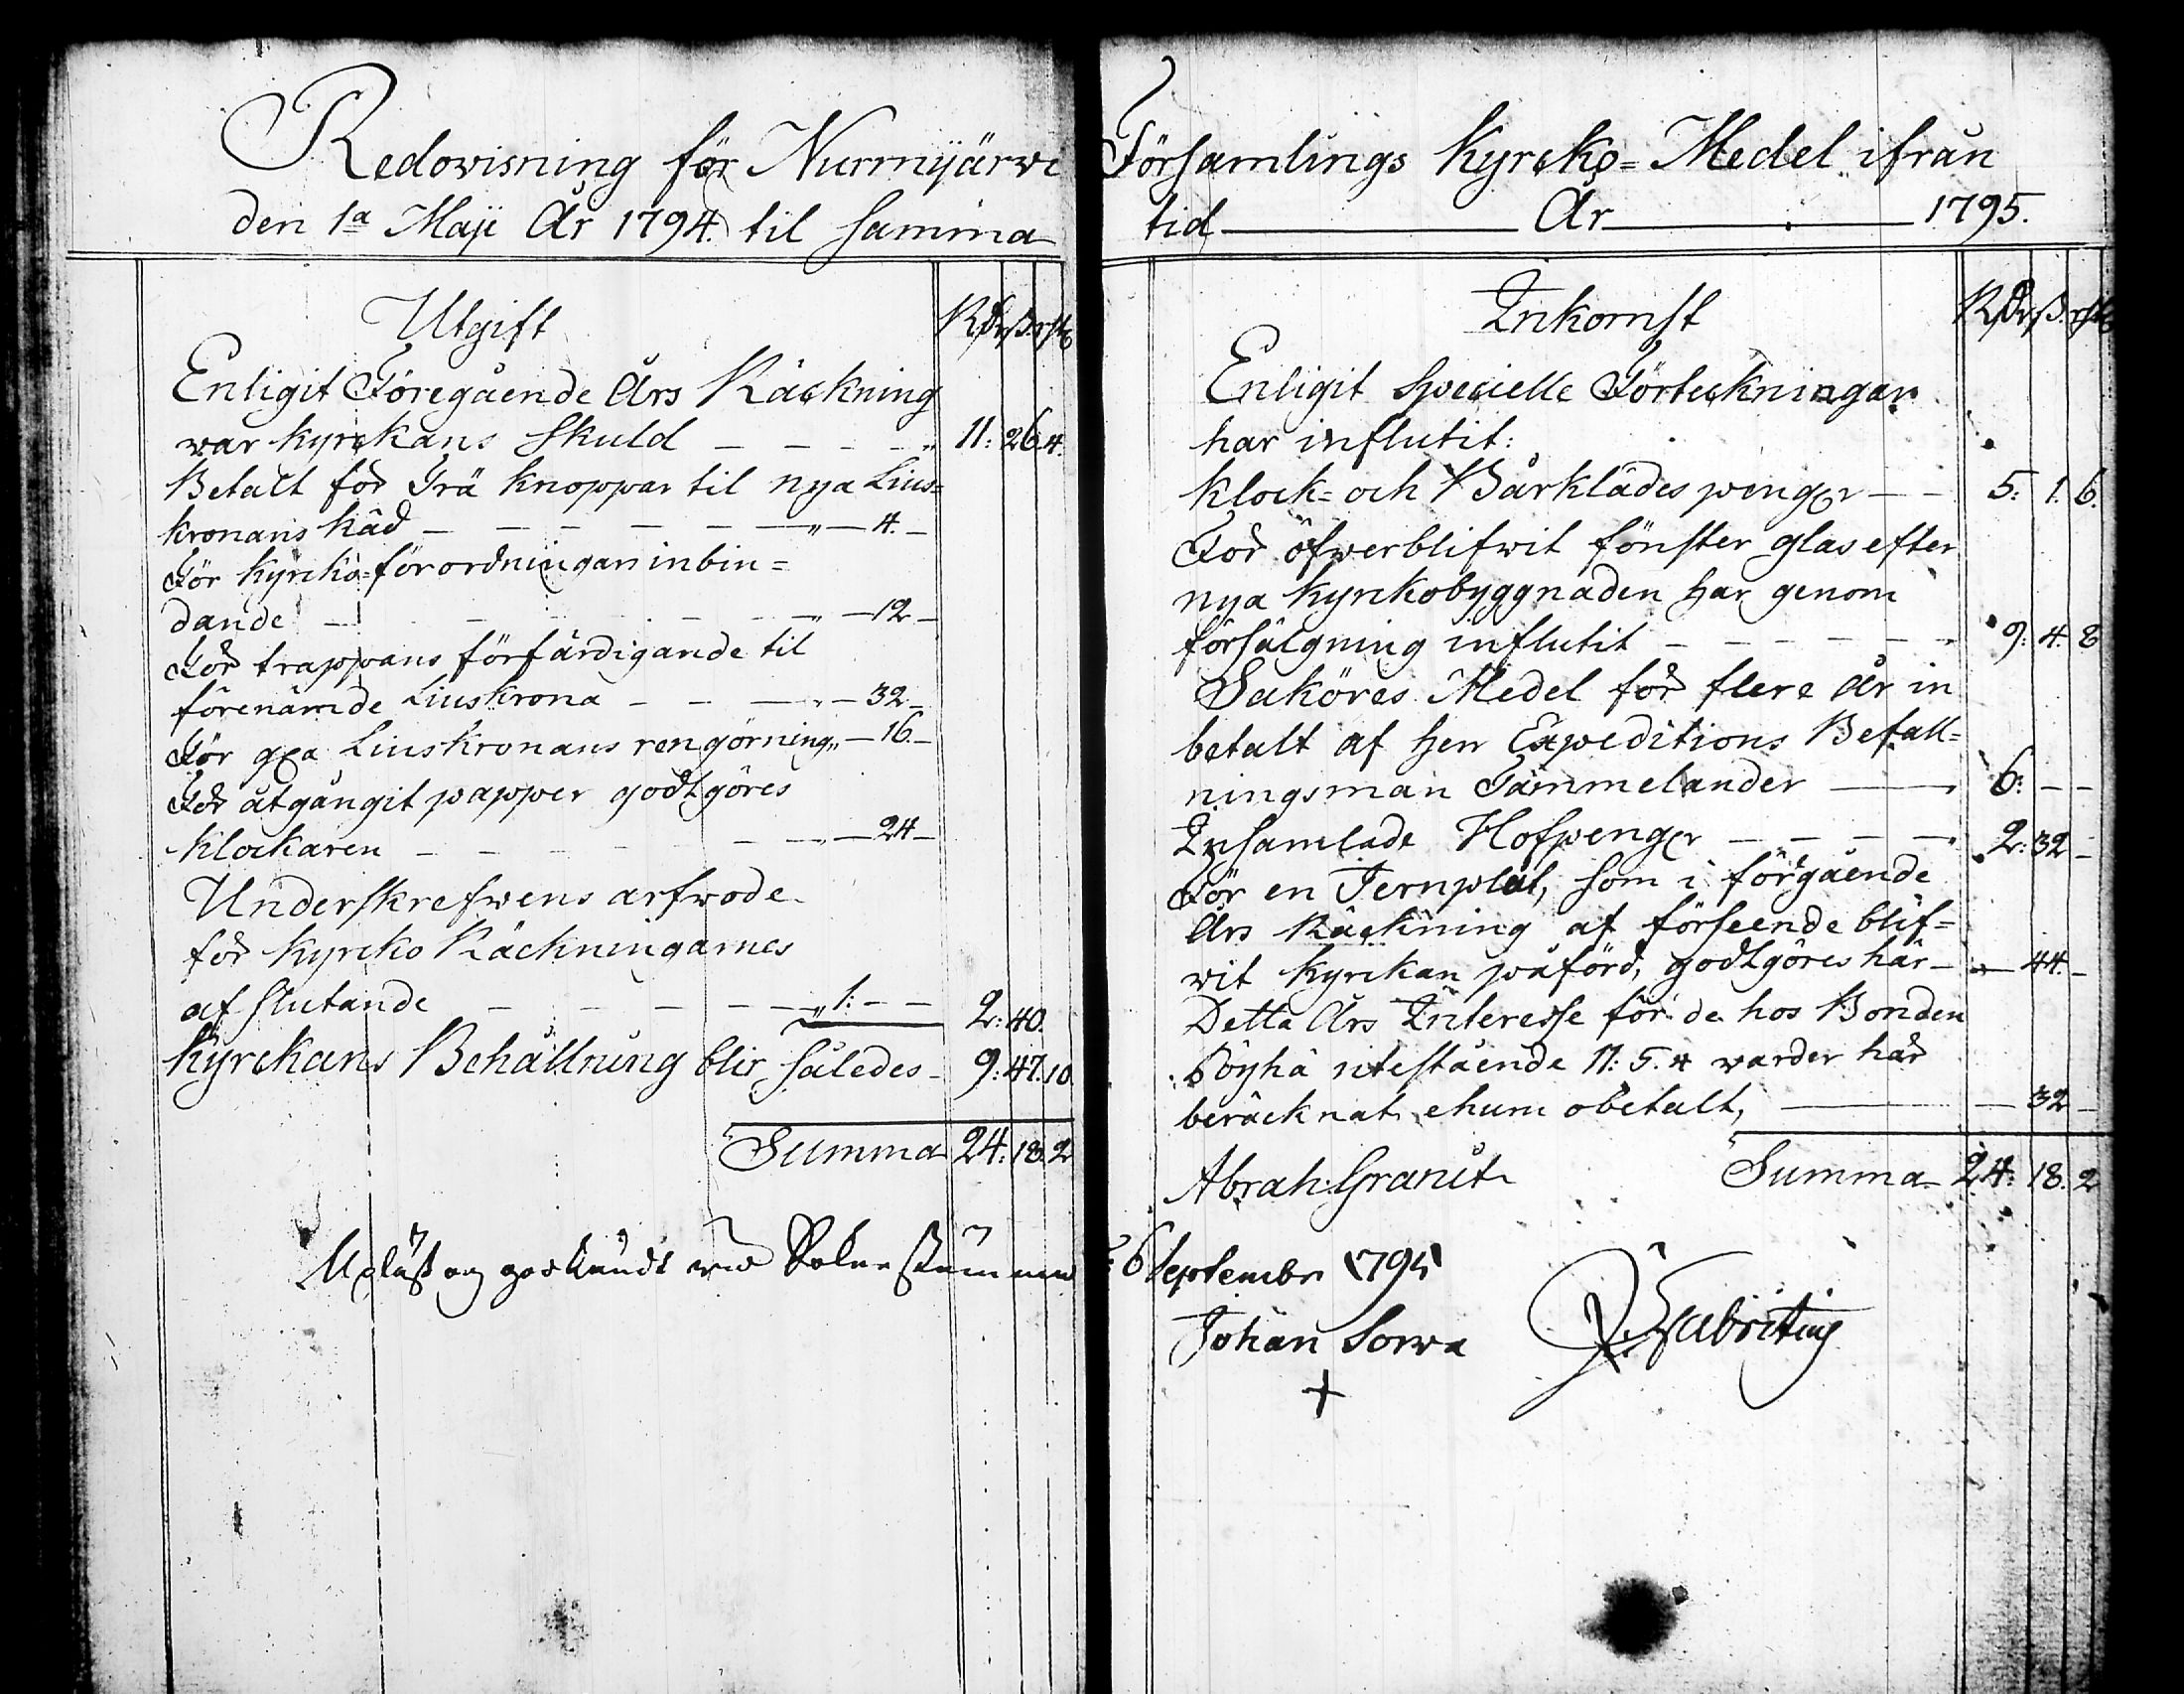 Redovisning för Nurmijärvi
den 1a Maji År 1794. til samma
Utgift
Rdr ß. rst
Enligit Föregående Års Räckning
war kyrckans Skuld - - - - " 11: 26. 4.
Betalt för Trä knoppar til nya Lius=
kronans käd - - - - - - " - 4. -
För kyrcko=förordningars inbin=
dande - - - - - - " - 12 -
För trappans förfärdigande til
förenämde Liuskrona - - - " - 32 -
För Liuskronans rengörning " - 16. -
För åtgångit papper godtgöres
klockaren - - - - - - " - 24 -
Underskrefwens arfwode
för kyrcko Räckningarnes
afslutande - - - - - " 1: - - 2: 40.
Kyrckans Behållning blir således - 9: 47. 10.
Summa 24: 18. 2
Upläst og godkändt wid Sokne stämman
Församlings Kyrcko=Medel ifrån
tid År 1795.
Inkomst
Rdr ß. rst
Enligit Specielle Förteckningar
har influtit:
Klock= och Bårklädes penger - - 5: 1. 6.
För öfwerblifwit fönster glas efter
nya kyrckobyggnaden har genom
försälgning influtit - - - - - 9: 4. 8
Saköres Medel för flere år in
betalt af Herr Expeditions Befall=
ningsman Tammelander - 6: - -
Insamlade Hofpenger - - - - 2: 32 -
För en Jernplåt, som i förgående
Års Räckning af förseende blif=
wit kyrckan påförd, godtgöres här - - 44. -
Detta Års Interesse för de hos Bonden
Böyhä utestående 11: 5. 4 warder här
beräcknat, ehuru obetalt, - 32 -
Summa 24: 18. 2
Abrah: Granit
6 Septembr 1795
Johan Sorva
+